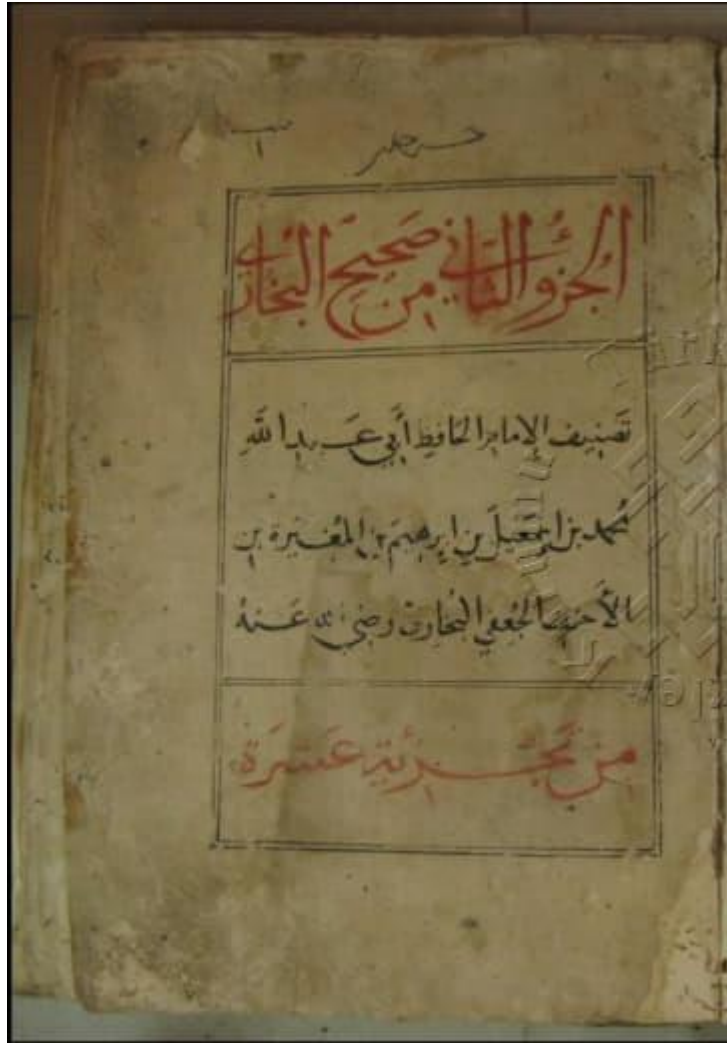 الجزؤ الثاني من صحيح البخاري
تصنيف الإمام الحافظ أبي عبد الله
محمد بن إسمعيل بن إبرهيم بن المغيرة بن
الأحنف الجعفي البخاري رضي الله عنه
من تجزئة عشرة